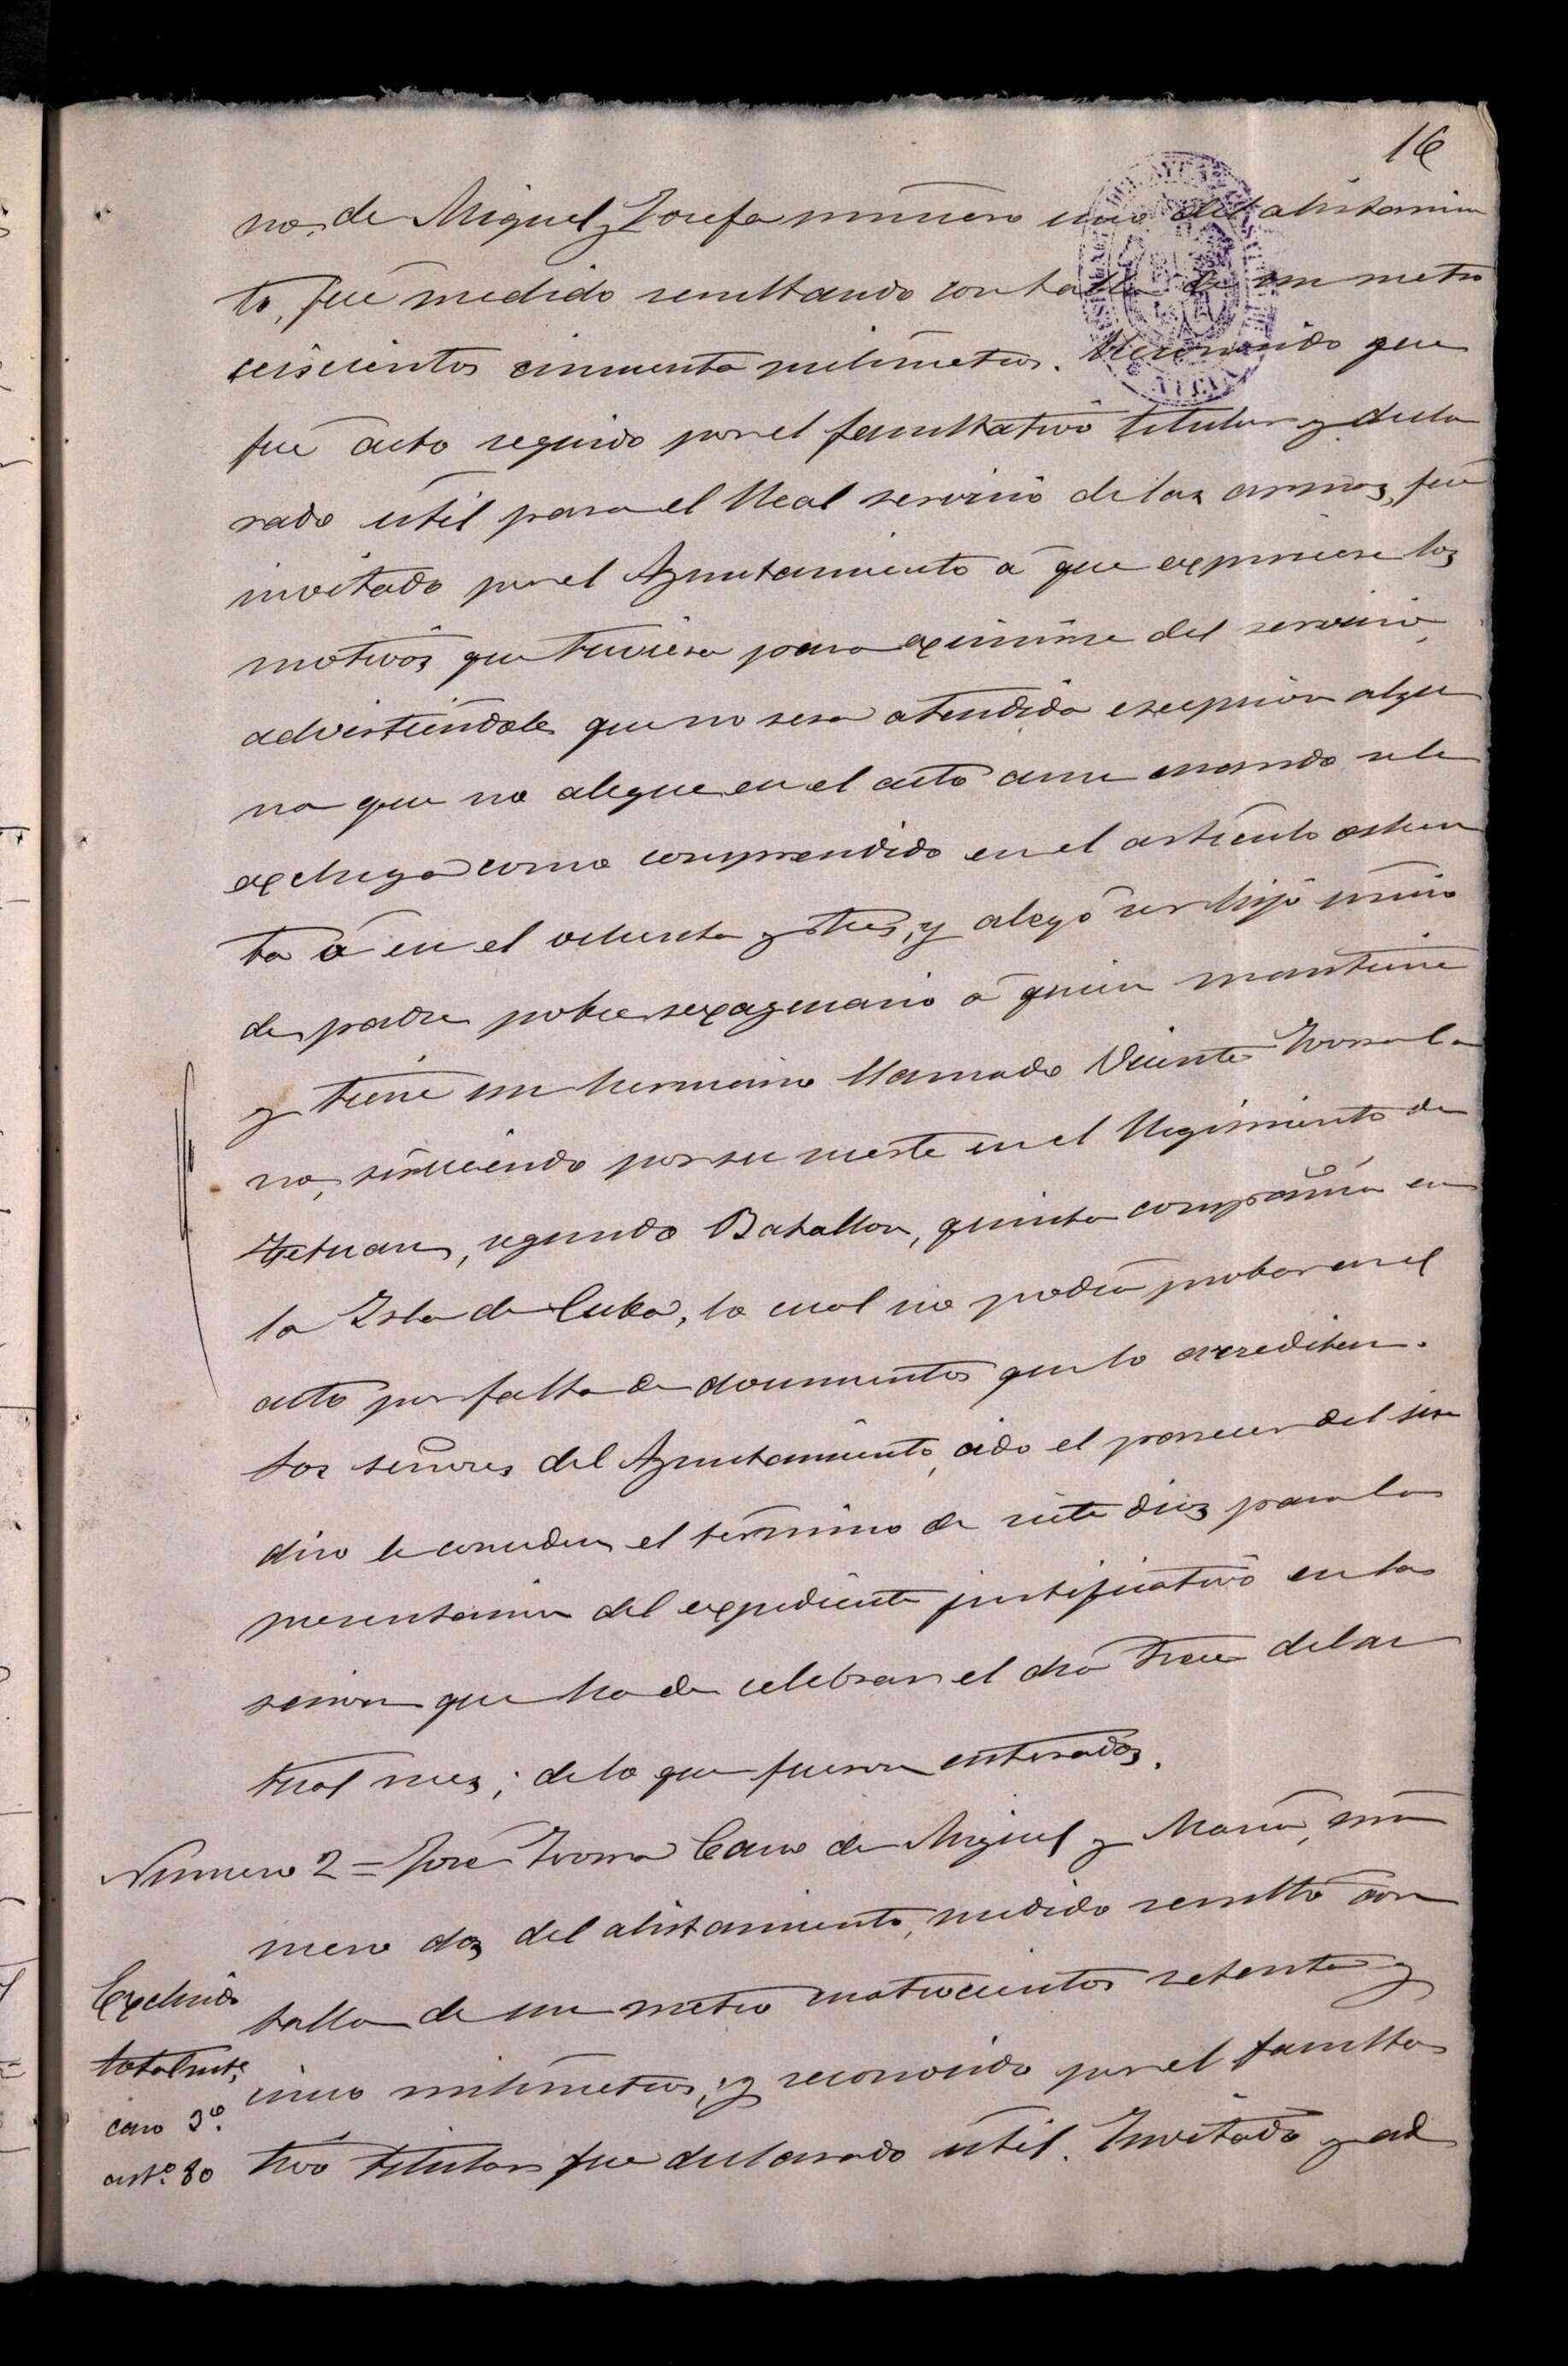 16
no, de Miguel y Josefa número uno del alistamien
to, fué medido resultando con talla de un metro
seiscientos cincuenta milímetros. Reconocido que
fué acto seguido por el facultativo titular y decla
rado útil para el Real servicio de las armas, fué
invitado por el Ayuntamiento á que expusiere los
motivos que tuviera para eximirse del servicio,
advirtiéndole que no sera atendida escepcion algu
na que no alegue en el acto aun cuando se le
excluya como comprendido en el artículo ochen
ta ó en el ochenta y tres, y alegó ser hijo único
de padre pobre sexagenario á quien mantiene
y tiene un hermano llamado Vicente
no, sirviendo por su suerte en el Regimiento de
Tetuan, segundo Batallon, quinta compañía en
la Isla de Cuba, lo cual no podia probar en el
acto por falta de documentos que lo acrediten.
Los señores del Ayuntamiento, oido el parecer del sin
dico le conceden el término de siete dias para la
presentacion del expediente justificativo en la
sesion que ha de celebrar el dia trece del ac
tual mes; de lo que fueron enterados.
Número 2 = José Cano de Miguel y María, nú
mero dos del alistamiento, medido resultó con
talla de un metro cuatrocientos setenta y
cinco milímetros; y reconocido por el faculta
tivo titular fue declarado útil. Invitado y ad
Excluido
totalmte,
caso 3º.
artº. 80